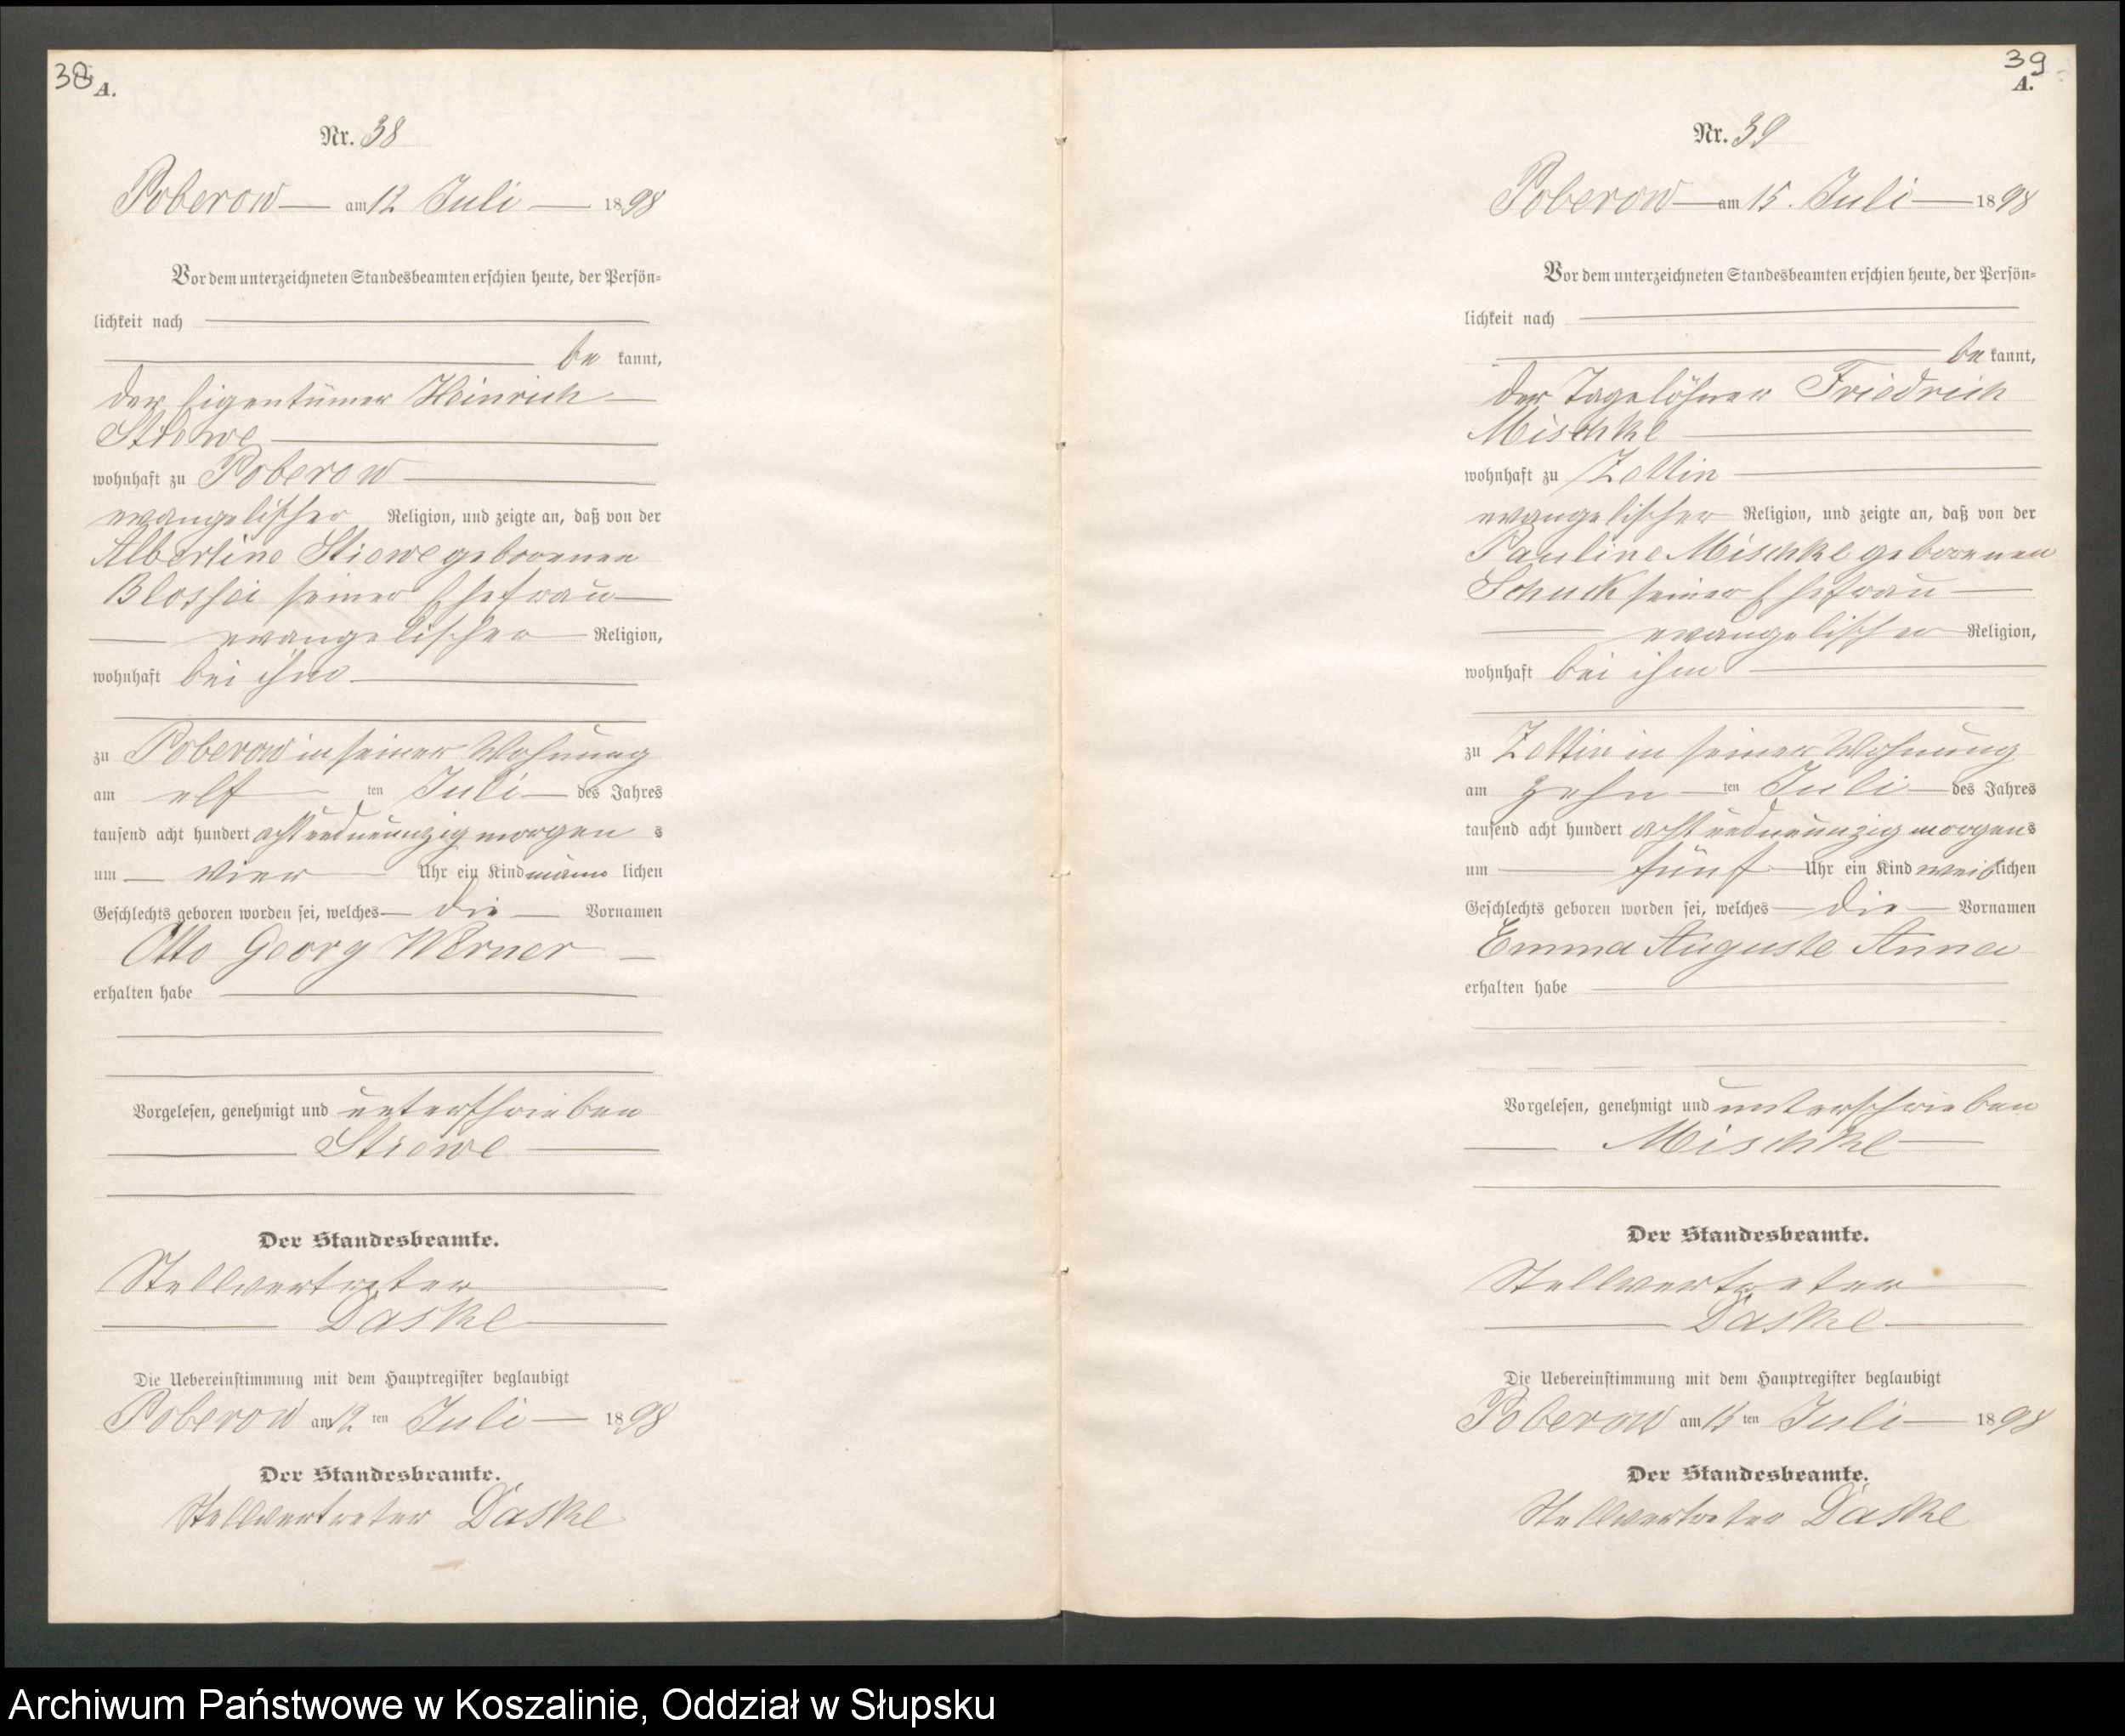 38
A.
Nr. 38
Poberow am 12 Juli 1898
Vor dem unterzeichneten Standesbeamten erschien heute, der Persön-
lichkeit nach
be kannt,
der Eigentümer Heinrich
Stiewe
wohnhaft zu Poberow
evangelischer Religion, und zeigte an, daß von der
Albertine Stiewe geborenen
seiner Ehefrau
evangelischer Religion,
wohnhaft bei ihm
zu Poberow in seiner Wohnung
am elf ten Juli des Jahres
tausend acht hundert achtundneunzig morgen s
um vier Uhr ein Kind männ lichen
Geschlechts geboren worden sei, welches die Vornamen
Otto Georg Werner
erhalten habe
Vorgelesen, genehmigt und unterschrieben
Stiewe
Der Standesbeamte.
Stellvertreter
Daske
Die Uebereinstimmung mit dem Hauptregister beglaubigt
Poberow am 12 ten Juli 1898
Der Standesbeamte.
Stellvertreter Daske
39
A.
Nr. 39
Poberow am 15. Juli 1898
Vor dem unterzeichneten Standesbeamten erschien heute, der Persön-
lichkeit nach
be kannt,
der Tagelöhner Friedrich
Mischke
wohnhaft zu Zettin
evangelischer Religion, und zeigte an, daß von der
Pauline Mischke geborenen
Schuck seiner Ehefrau
evangelischer Religion,
wohnhaft bei ihm
zu Zettin in seiner Wohnung
am zehn ten Juli des Jahres
tausend acht hundert achtundneunzig morgens
um fünf Uhr ein Kind weiblichen
Geschlechts geboren worden sei, welches die Vornamen
Emma Auguste Anna
erhalten habe
Vorgelesen, genehmigt und unterschrieben
Mischke
Der Standesbeamte.
Stellvertreter
Daske
Die Uebereinstimmung mit dem Hauptregister beglaubigt
Poberow am 15 ten Juli 1898
Der Standesbeamte.
Stellvertreter Daske
Archiwum Państwowe w Koszalinie, Oddział w Słupsku